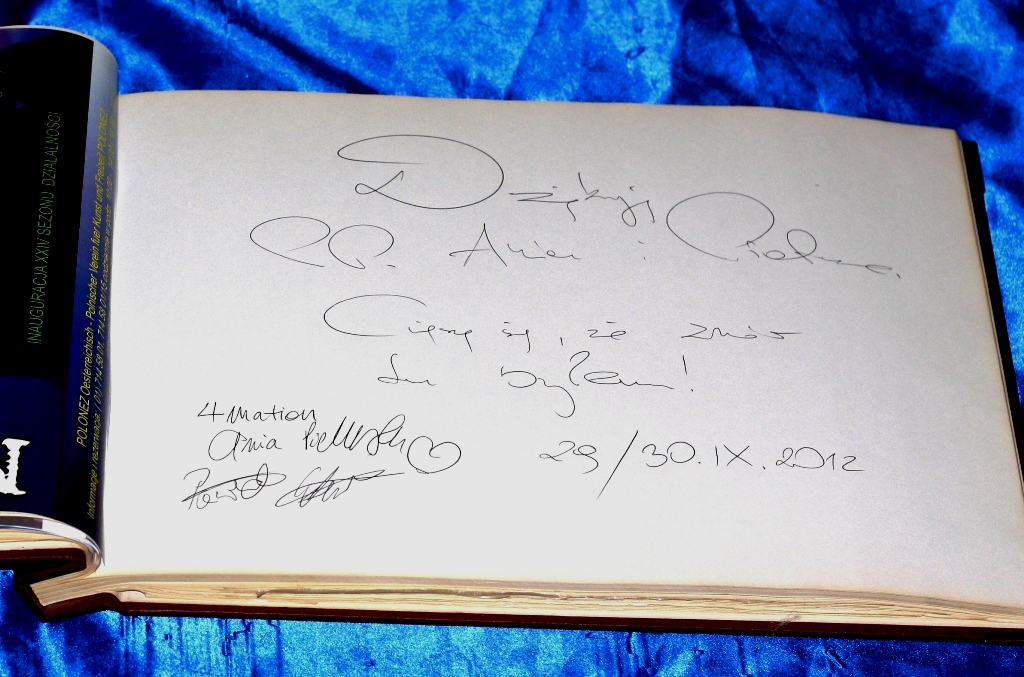 INAUGURACJA XXIV SEZONU DZIAŁALNOŚCI
POLONEZ Oesterreichisch - Polnischer Verein fuer Kunst und Freizeit POLONEZ
Dziękuję
PP. Ani i
Cieszę się, że znów
tu byłem!
4mation
Ania
29/30.IX.2012